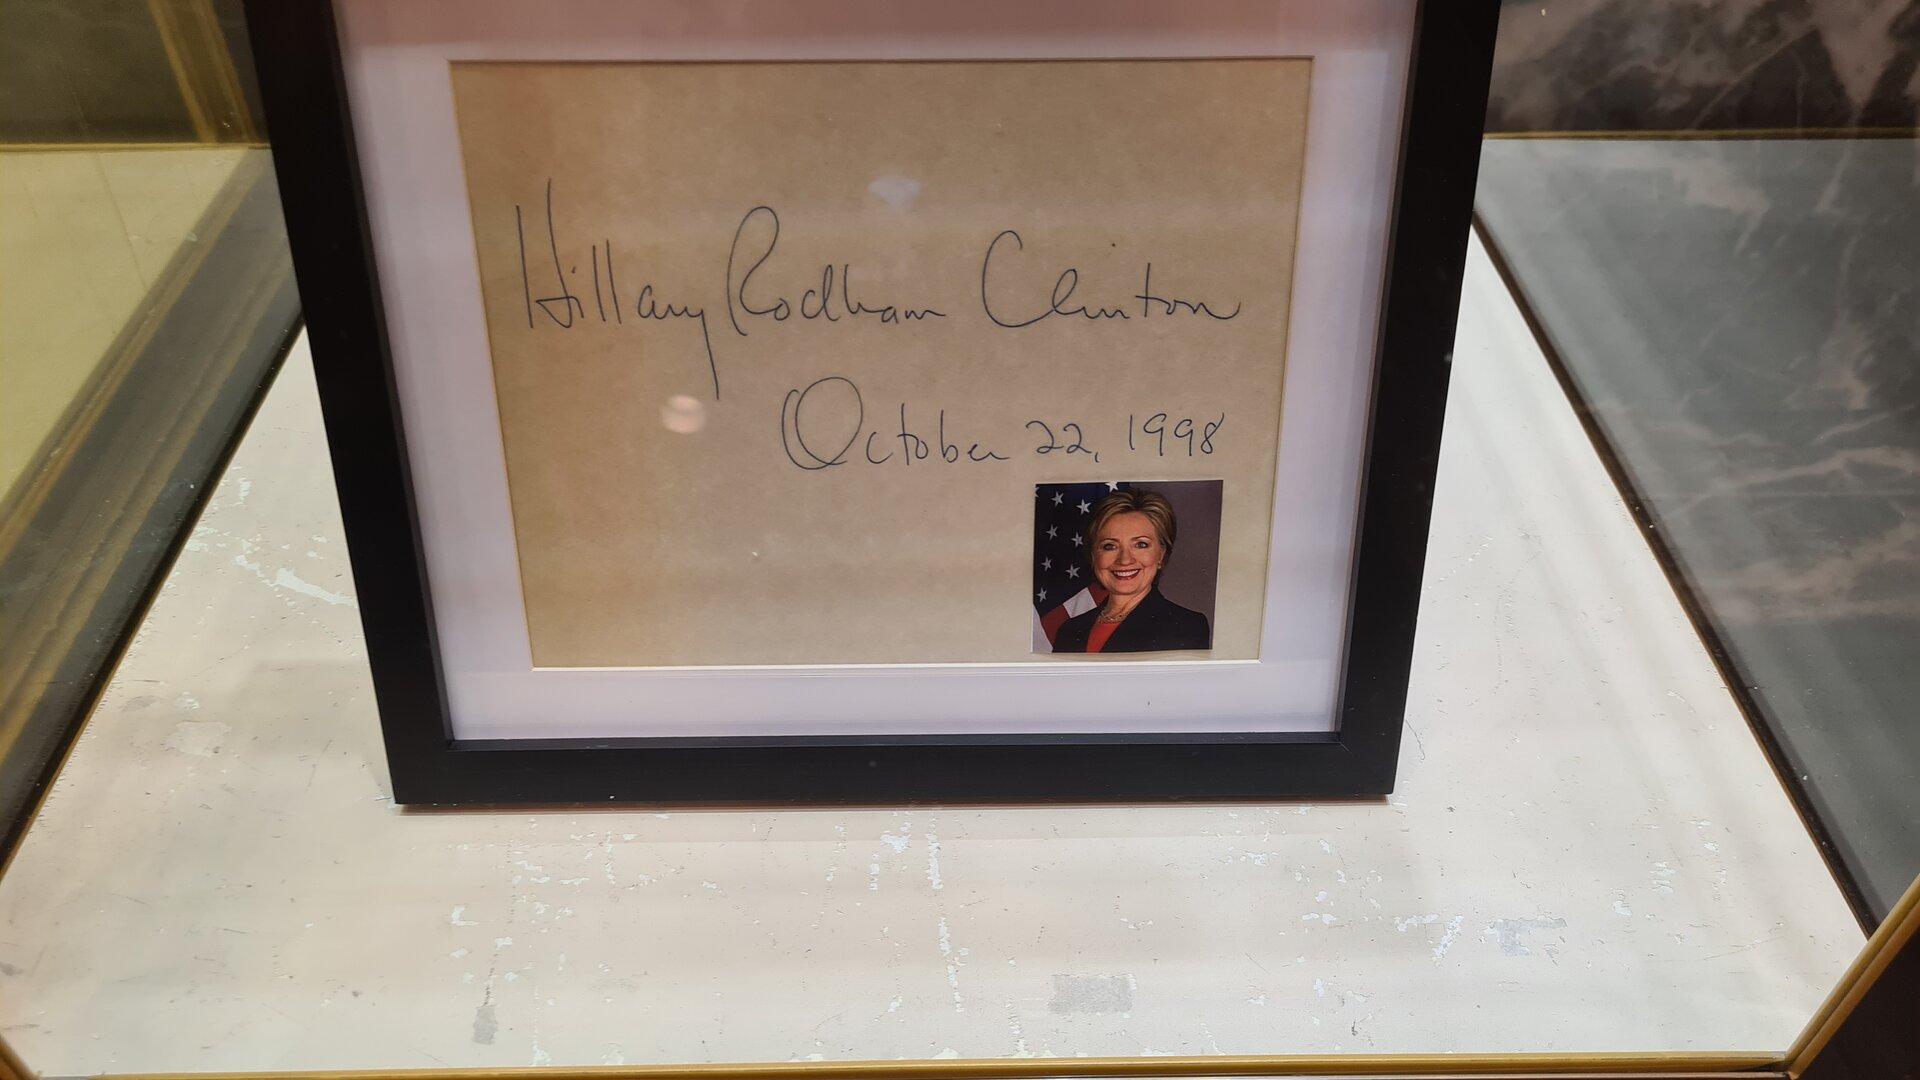 Hillary Rodham Clinton
October 22, 1998